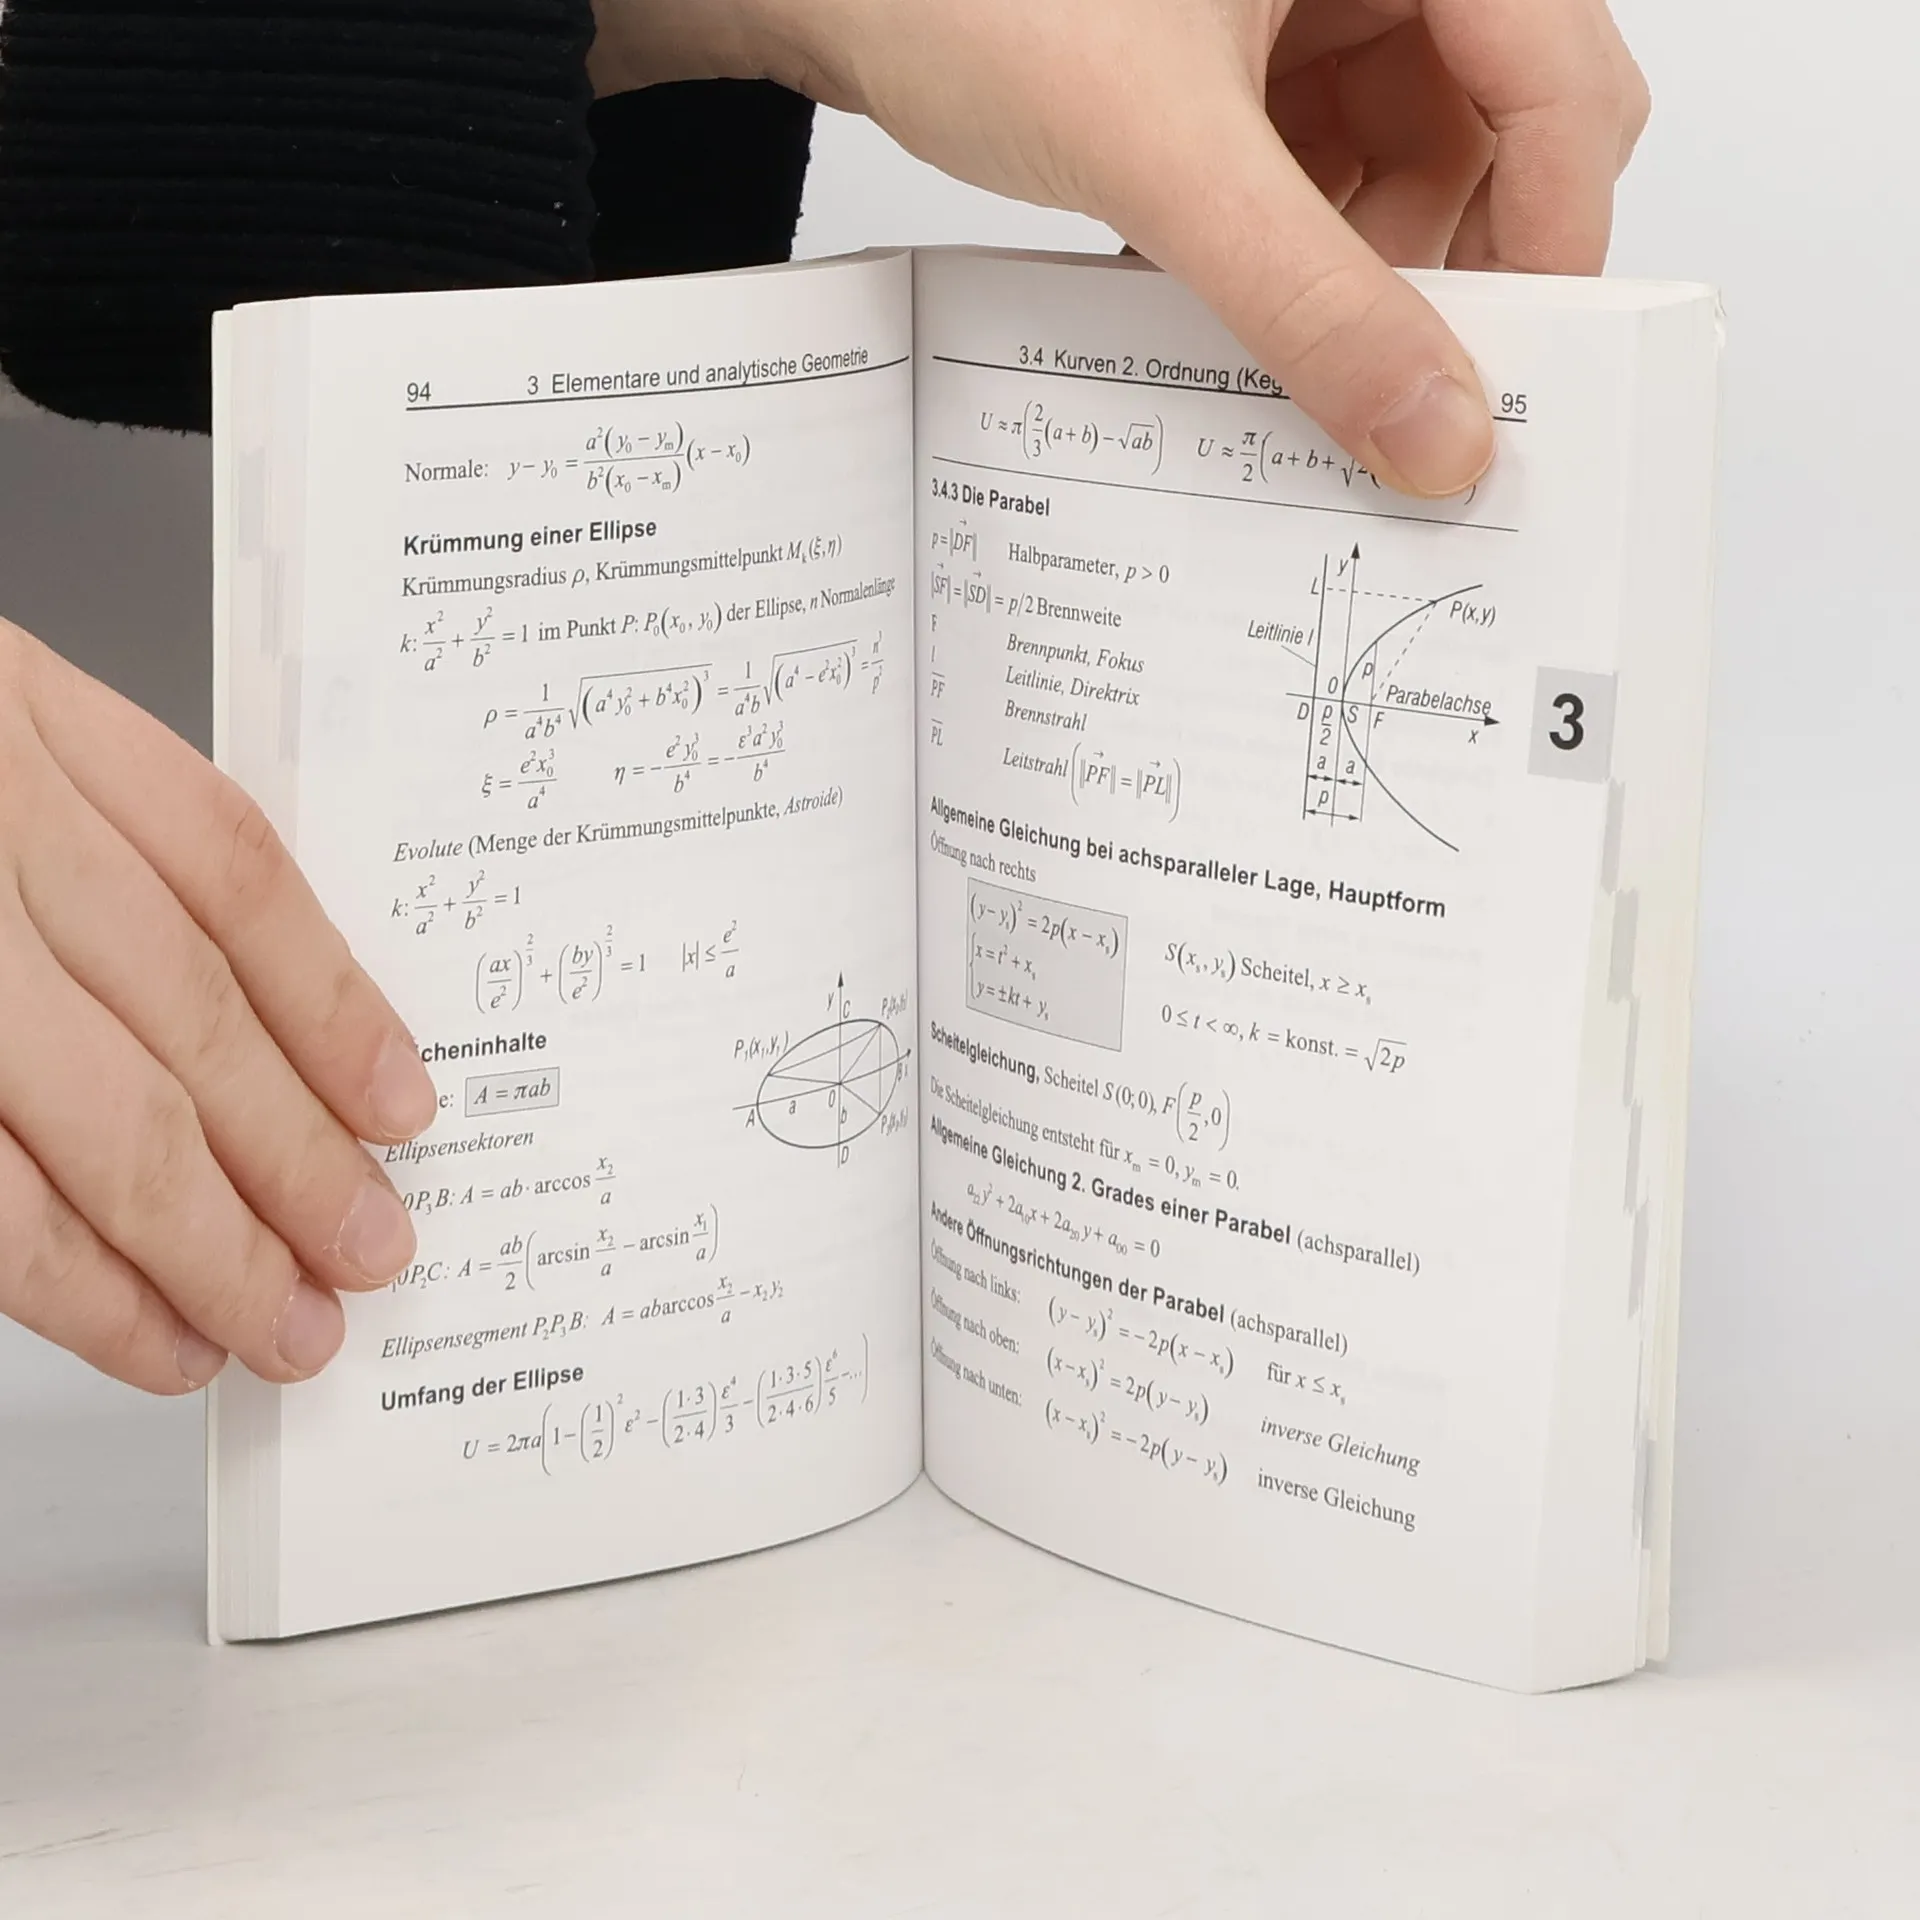 94 3 Elementare und analytische Geometrie
Normale: y − y₀ = a²(y₀ − yₘ) / b²(x₀ − xₘ) (x − x₀)
Krümmung einer Ellipse
Krümmungsradius ρ, Krümmungsmittelpunkt Mₖ(ξ,η)
k: x²/a² + y²/b² = 1 im Punkt P: P₀(x₀, y₀) der Ellipse, n Normalenlänge
ρ = 1/(a⁴b⁴) √(a⁴y₀² + b⁴x₀²)³ = 1/(a⁴b) √(a⁴ − e²x₀²)³ = n³/p²
ξ = e²x₀³/a⁴ η = −e²y₀³/b⁴ = −ε³a²y₀³/b⁴
Evolute (Menge der Krümmungsmittelpunkte, Astroide)
k: x²/a² + y²/b² = 1
(ax/e²)^(2/3) + (by/e²)^(2/3) = 1 |x| ≤ e²/a
cheninhalte
e: A = πab
Ellipsensektoren
0P₃B: A = ab · arccos x₂/a
0P₂C: A = ab/2 (arcsin x₂/a − arcsin x₁/a)
Ellipsensegment P₂P₃B: A = ab arccos x₂/a − x₂y₂
y C
P₁(x₁,y₁)
B x
A a 0 b
D
Umfang der Ellipse
U = 2πa(1 − (1/2)² ε² − (1·3/2·4) ε⁴/3 − (1·3·5/2·4·6) ε⁶/5 − ...)
3.4 Kurven 2. Ordnung 95
U ≈ π(2/3 (a + b) − √ab) U ≈ π/2 (a + b + √
3.4.3 Die Parabel
p = |DF| Halbparameter, p > 0
|SF| = |SD| = p/2 Brennweite
F Brennpunkt, Fokus
l Leitlinie, Direktrix
PF Brennstrahl
PL Leitstrahl (|PF| = |PL|)
y
L P(x,y)
Leitlinie l
p
0 Parabelachse
D p/2 S F x
a a
p
Allgemeine Gleichung bei achsparalleler Lage, Hauptform
Öffnung nach rechts
(y − yₛ)² = 2p(x − xₛ) S(xₛ, yₛ) Scheitel, x ≥ xₛ
x = t² + xₛ
y = ±kt + yₛ 0 ≤ t < ∞, k = konst. = √2p
Scheitelgleichung, Scheitel S(0;0), F(p/2, 0)
Die Scheitelgleichung entsteht für xₘ = 0, yₘ = 0.
Allgemeine Gleichung 2. Grades einer Parabel (achsparallel)
a₂₂y² + 2a₁₀x + 2a₂₀y + a₀₀ = 0
Andere Öffnungsrichtungen der Parabel (achsparallel)
Öffnung nach links: (y − yₛ)² = −2p(x − xₛ) für x ≤ xₛ
Öffnung nach oben: (x − xₛ)² = 2p(y − yₛ) inverse Gleichung
Öffnung nach unten: (x − xₛ)² = −2p(y − yₛ) inverse Gleichung
3